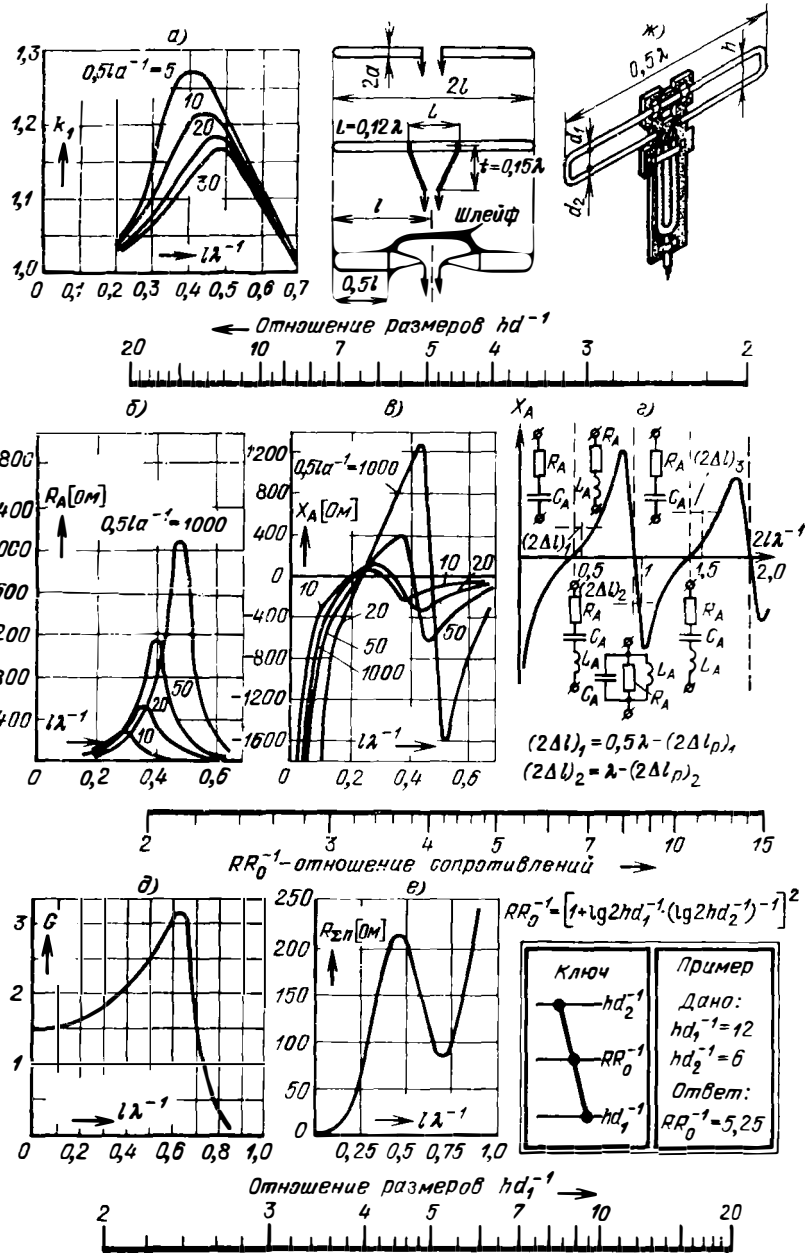 а)
1,3
1,2
1,1
1,0
k₁
0,5la⁻¹=5
10
20
30
lλ⁻¹
0 0,1 0,2 0,3 0,4 0,5 0,6 0,7
2a
2l
L=0,12λ
L
t=0,15λ
l
Шлейф
0,5l
ж)
0,5λ
h
d₁
d₂
Отношение размеров hd⁻¹
20 10 7 6 5 4 3 2
б)
800
400
000
600
200
800
400
0
R_A[Ом]
0,5la⁻¹=1000
50
20
10
lλ⁻¹
0 0,2 0,4 0,6
в)
1200
800
400
0
-400
-800
-1200
-1600
0,5la⁻¹=1000
X_A[Ом]
10
20
10
20
50
50
1000
lλ⁻¹
0 0,2 0,4 0,6
г)
X_A
R_A
C_A
R_A
L_A
R_A
C_A
(2Δl)₃
(2Δl)₁
2lλ⁻¹
0,5
1
1,5
2,0
(2Δl)₂
R_A
C_A
L_A
C_A
L_A
R_A
R_A
C_A
L_A
(2Δl)₁=0,5λ-(2Δlр)₁
(2Δl)₂=λ-(2Δlр)₂
2 3 4 5 10 15
RR₀⁻¹-отношение сопротивлений
д)
G
3
2
1
0
lλ⁻¹
0 0,2 0,4 0,6 0,8 1,0
е)
250
200
150
100
50
0
R_Σп[Ом]
lλ⁻¹
0,25 0,5 0,75 1,0
RR₀⁻¹=[1+lg2hd₁⁻¹·(lg2hd₂⁻¹)⁻¹]²
Ключ
hd₂⁻¹
RR₀⁻¹
hd₁⁻¹
Пример
Дано:
hd₁⁻¹=12
hd₂⁻¹=6
Ответ:
RR₀⁻¹=5,25
Отношение размеров hd₁⁻¹
2 3 4 5 7 10 20